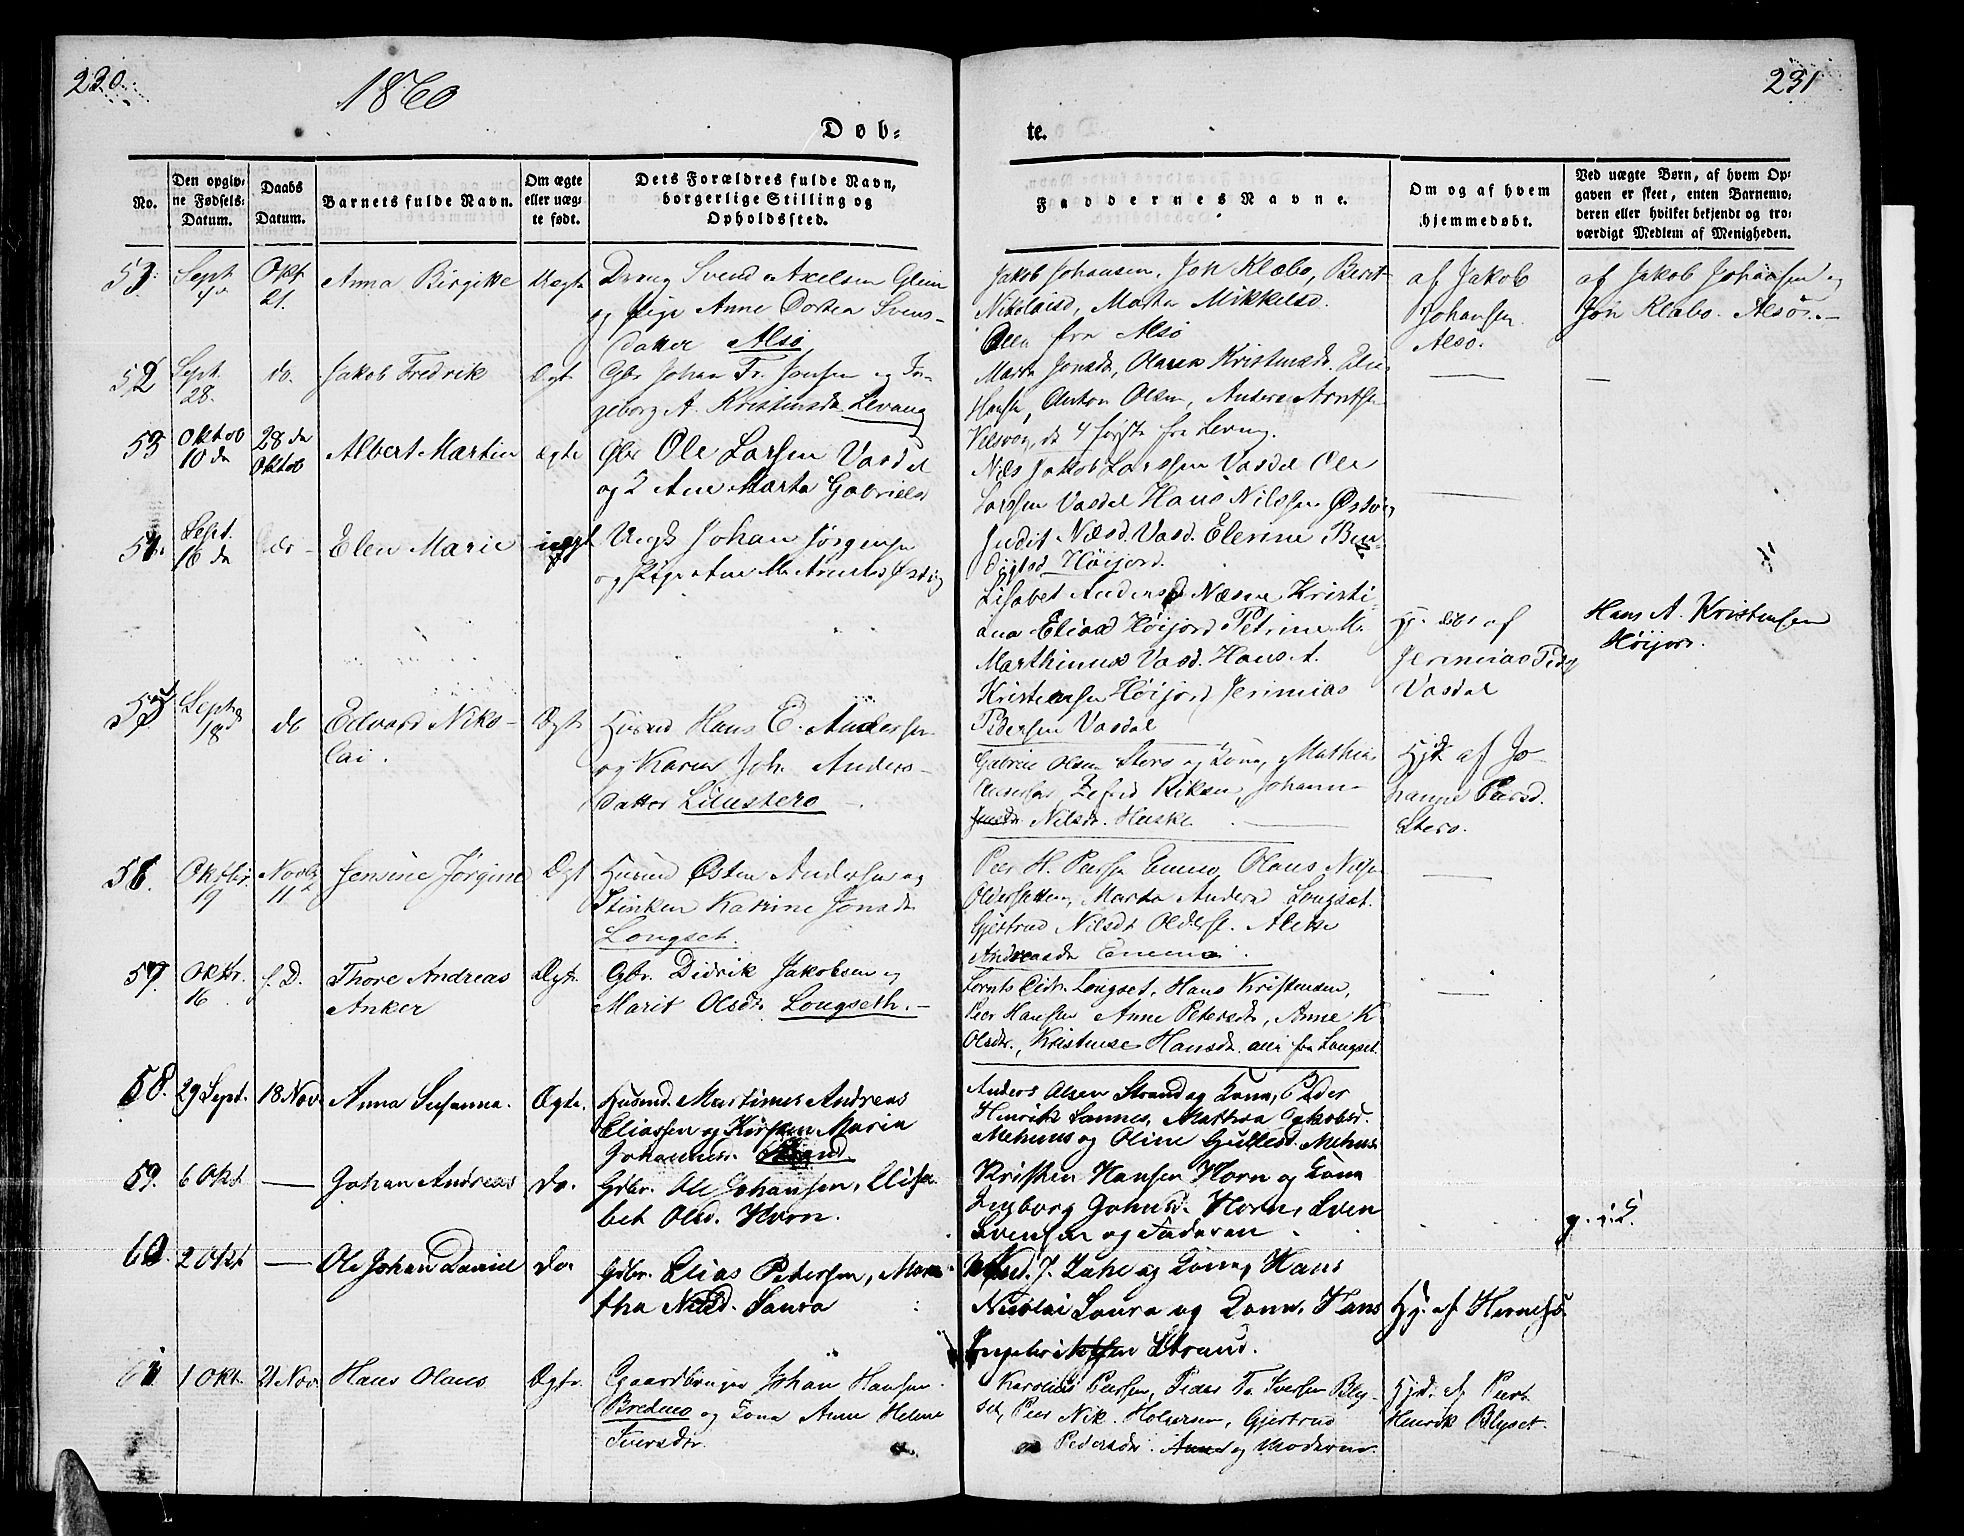 230.
1860
231
Døb-
te.
No.
Den opgiv-
ne Fødsels-
Datum.
Daabs
Datum.
Barnets fulde Navn.
Om ægte
eller uæg-
te født.
Dets Forældres fulde Navn,
borgerlige Stilling og
Opholdssted.
Faddernes Navne.
Om og af hvem
hjemmedøbt.
Ved uægte Børn, af hvem Op-
gaven er skeet, enten Barnemo-
deren eller hvilket bekjendt og tro-
værdigt Medlem af Menigheden.
Sept
4
Okt
21.
Anna Birgitte
Uægte
Dreng Svend Axelsen
og Pige Anne Dortea Svens-
datter Alsø
Jakob Johansen, Jon Klæbo, Berit
Nikolaisd, Marta Mikkelsd.
fra Alsø
af Jakob
Johansen
Alsø.
af Jakob Johansen og
Jon Klæbo. Alsø.
52
Sept.
28.
do.
Jakob Fredrik
Ægt.
Gbr Johan Fr. Jensen og In-
geborg A. Kristensdr Levang
Marta Jonsdr, Olava Kristensdr.
Hansen, Anton Olsen, Anders Arntsen
de 4 første fra Levang.
53
Oktob
10 de
28 de
Oktob
Albert Martin
Ægte
Gbr Ole Larsen Vasdal
og Ane Marta Gabrielsd
Nils Jakob Larssen Vasdal Ole
Larssen Vasdal Hans Nilssen Østvig
Judit Næsd. Vasd. Elerine Ben-
digtsd Høijord.
54.
Sept.
16 de
Elen Marie
uægt
Ungk Johan Jørgensen
og Pige Ane M. Arntsd Østvig
Lisabet Andersd Næsne Kristi-
ana Eliasd Høijord Petrine M.
Marthinusd Vasd. Hans A.
Kristensen Høijord Jerimias
Pedersen Vasdal
Hj. døbt af
Jerimias Peders
Vasdal
Hans A. Kristensen
Høijord.
55
Sept
18
do
Edvard Niko-
lai.
Ægt
Husmd Hans E. Andersen
og Karen Joh. Anders-
datter
Gabriel Olsen Stero og Kona, Mathias
Johann-
Nilsdr. Huske.
Hjd. af Jo-
hannes Persd.
Stero.
56.
Oktbr.
19
Novbr
11
Jensine Jørgine
Ægt
Husmd Østen Andersen og
Stinken Katrine Jonsdr
Longset.
Peer H. Persen Olaus Nilsen
Oldersetten, Marta Andersd Longset.
Gjertrud Nilsdr Olderset.
Andreasdr
57
Oktbr.
16
Thore Andreas
Anker
Ægt.
Gbr. Didrik Jakobsen og
Marit Olsdr. Longseth.
Lornts Didr. Longset, Hans Kristensen,
Peer Hansen Anne Petersdr, Anne K
Olsdr., Kristense Hansdr. alle fra Longset.
58.
29 Sept.
18 Nov.
Anna Susanna.
Ægte.
Husmd. Martinus Andreas
Eliassen og Kirsten Maria
Johannesdr. Strand.
Anders Olsen Strand og Kona, Peder
Henrik Sannes, Mathea Jakobsd.
Mehuus og Oline Gullesd. Mehus
59.
6 Okt
Johan Andreas
Do.
Gdbr. Ole Johansen, Elisa-
bet Olsd. Horn.
Kristen Hansen Horn og Kona
Ingborg Johnsd. Horn, Sven
Svensen og Faderen.
60
2 Okt
Ole Johan Daniel
Do.
Gdbr. Elias Petersen, Mar-
tha Nilsd. Saura
og Kona, Hans
Nicolai Saura og Kona, Hans
Ingebrigtsen Strand.
Hj. af
61
1 Okt.
21 Nov.
Hans Olaus
Ægte.
Gaardbruger Johan Hansen
Brednes og Kona Anne Helene
Iversdtr.
Karolius Persen, Peder Fr. Iversen Bly-
set, Peer Nik. Gjertrud
Pedersdr. og Moderen
Hjd. af Peer
Henrik Blyset.